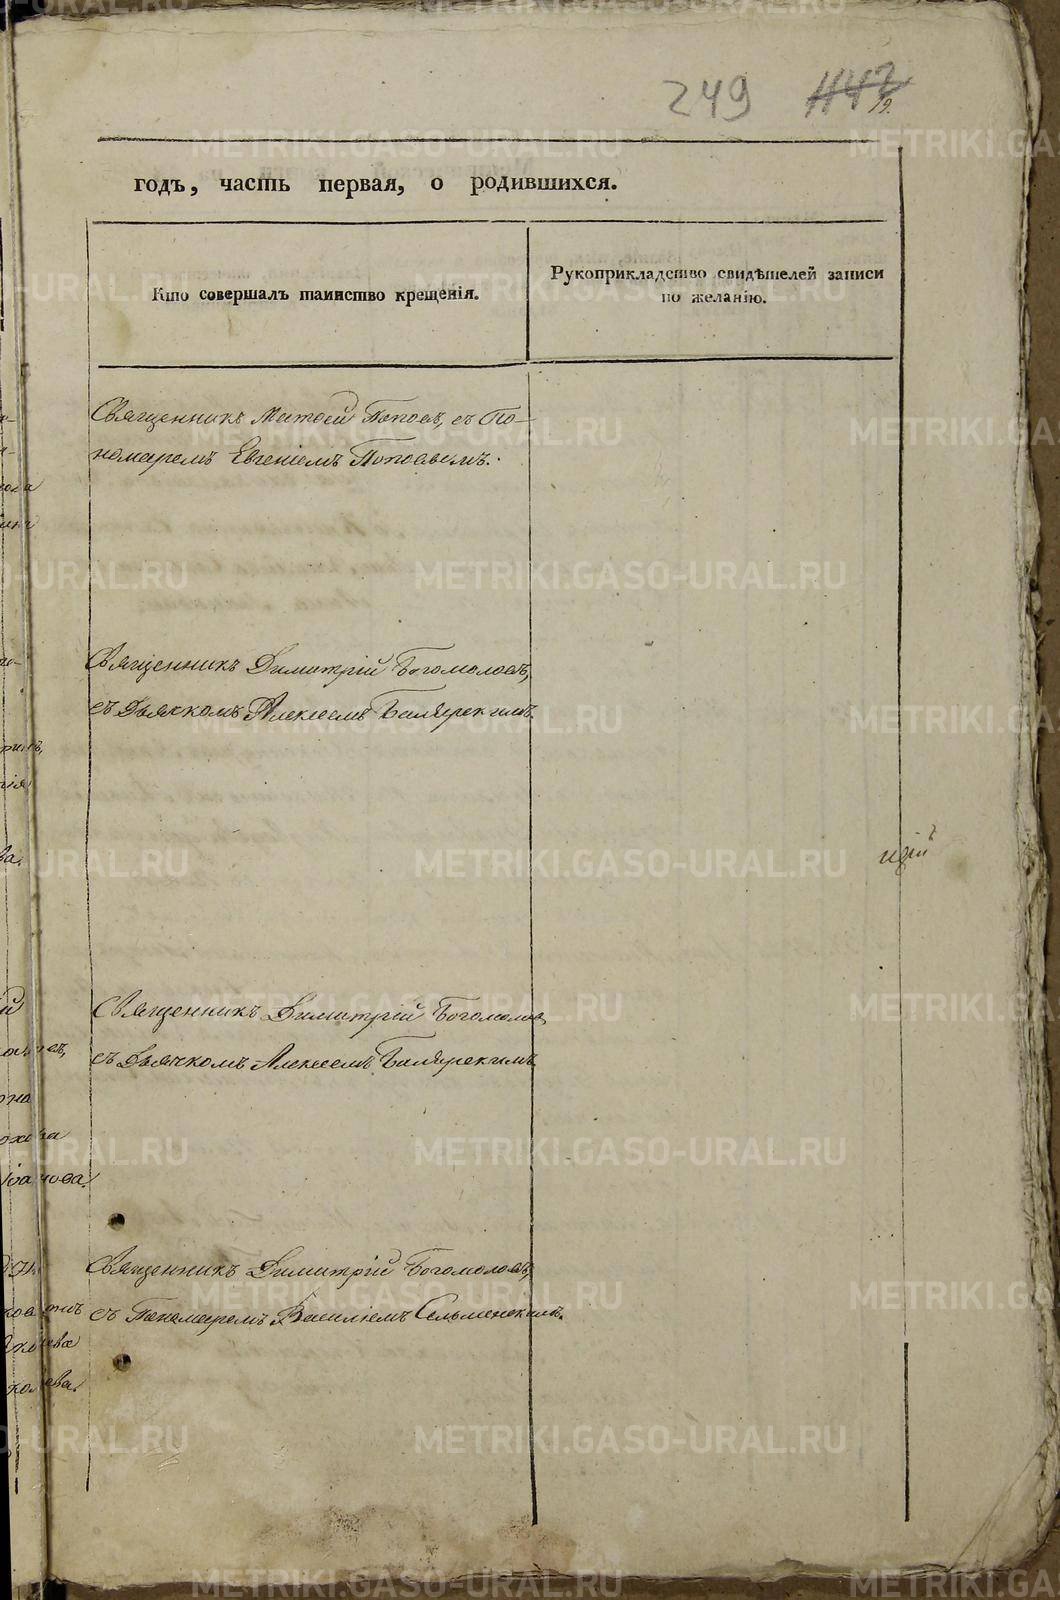 249 447
19.
годъ, часть первая, о родившихся.
Кто совершалъ таинство крещенія.
Рукоприкладство свидѣтелей записи
по желанію.
Священникъ Матѳей Поповъ, съ По-
номаремъ Евгеніемъ Поповымъ.
Священникъ Димитрій Богомоловъ,
съ Дьячкомъ Алексеемъ
Священникъ Димитрій Богомоловъ,
съ Дьячкомъ Алексеемъ
Священникъ Димитрій Богомоловъ,
съ Пономаремъ Василіемъ Сельменскимъ.
METRIKI.GASO-URAL.RU